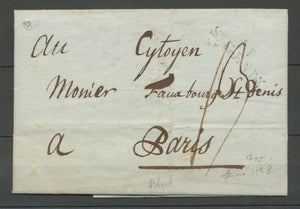 Au Cytoyen
Monier Fauxbourg St Denis
a Paris